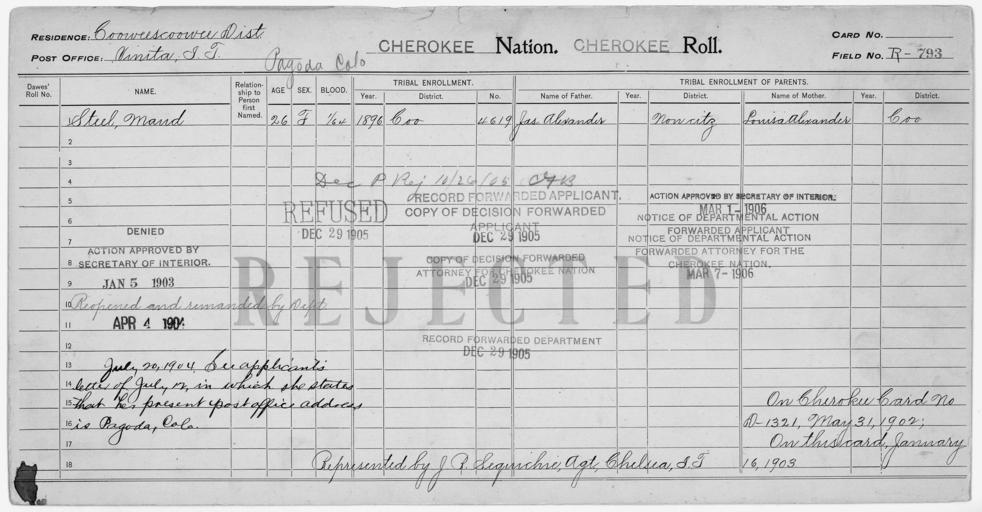 RESIDENCE: Coowescoowee Dist.
POST OFFICE: Vinita, I.T.
Pagoda Colo
CHEROKEE Nation. CHEROKEE Roll.
CARD NO.
FIELD NO. R-793
Dawes' Roll No. NAME. Relationship to Person first Named. AGE SEX. BLOOD. TRIBAL ENROLLMENT. Year. District. No. TRIBAL ENROLLMENT OF PARENTS. Name of Father. Year. District. Name of Mother. Year. District.
1 Steel, Maud 26 F 1/64 1896 Coo 4619 Jas. Alexander Non citz Louisa Alexander Coo
2
3
4 Dec P Rej 10/26/05
5 RECORD FORWARDED APPLICANT. ACTION APPROVED BY SECRETARY OF INTERIOR.
REFUSED COPY OF DECISION FORWARDED MAR 1-1906
6 APPLICANT NOTICE OF DEPARTMENTAL ACTION
DENIED DEC 29 1905 DEC 29 1905 FORWARDED APPLICANT
7 NOTICE OF DEPARTMENTAL ACTION
ACTION APPROVED BY FORWARDED ATTORNEY FOR THE
8 SECRETARY OF INTERIOR. COPY OF DECISION FORWARDED CHEROKEE NATION.
ATTORNEY FOR CHEROKEE NATION MAR 7-1906
9 JAN 5 1903 DEC 29 1905
REJECTED
10 Reopened and remanded by Dept.
11 APR 4 1904
12 RECORD FORWARDED DEPARTMENT
DEC 29 1905
13 July 20, 1904. See applicant's
14 letter of July 12, in which she states
15 that her present post office address
16 is Pagoda, Colo.
On Cherokee Card No
D-1321, May 31, 1902;
17 On this card, January
16, 1903
18 Represented by J. P. Agt, Chelsea, I.T